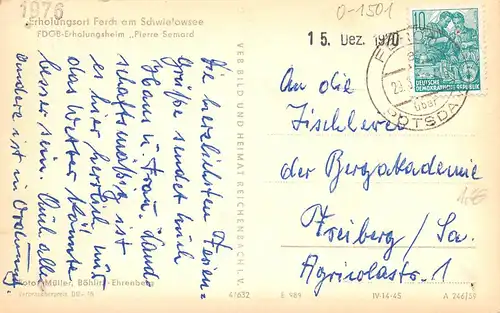 1976
Erholungsort Ferch am Schwielowsee
FDGB-Erholungsheim „Pierre Semard
0-1501
15. Dez. 1970
10
DEUTSCHE
DEMOKRATISCHE REPUBLIK
über
POTSDA
VEB BILD UND HEIMAT REICHENBACH I. V.
Die herzlichsten Ferien-
Grüße sendet Euch
Hans u. Frau. Land-
schaftsmäßig ist
es hier herrlich nur
das Wetter könnte
besser sein. Auch alles
andere ist in Ordnung.
An die
Tischlerei
der Bergakademie
Freiberg/Sa.
Agricolastr. 1
Foto: Müller, Böhlitz-Ehrenberg
47632
E 989
IV-14-45
A 246/59